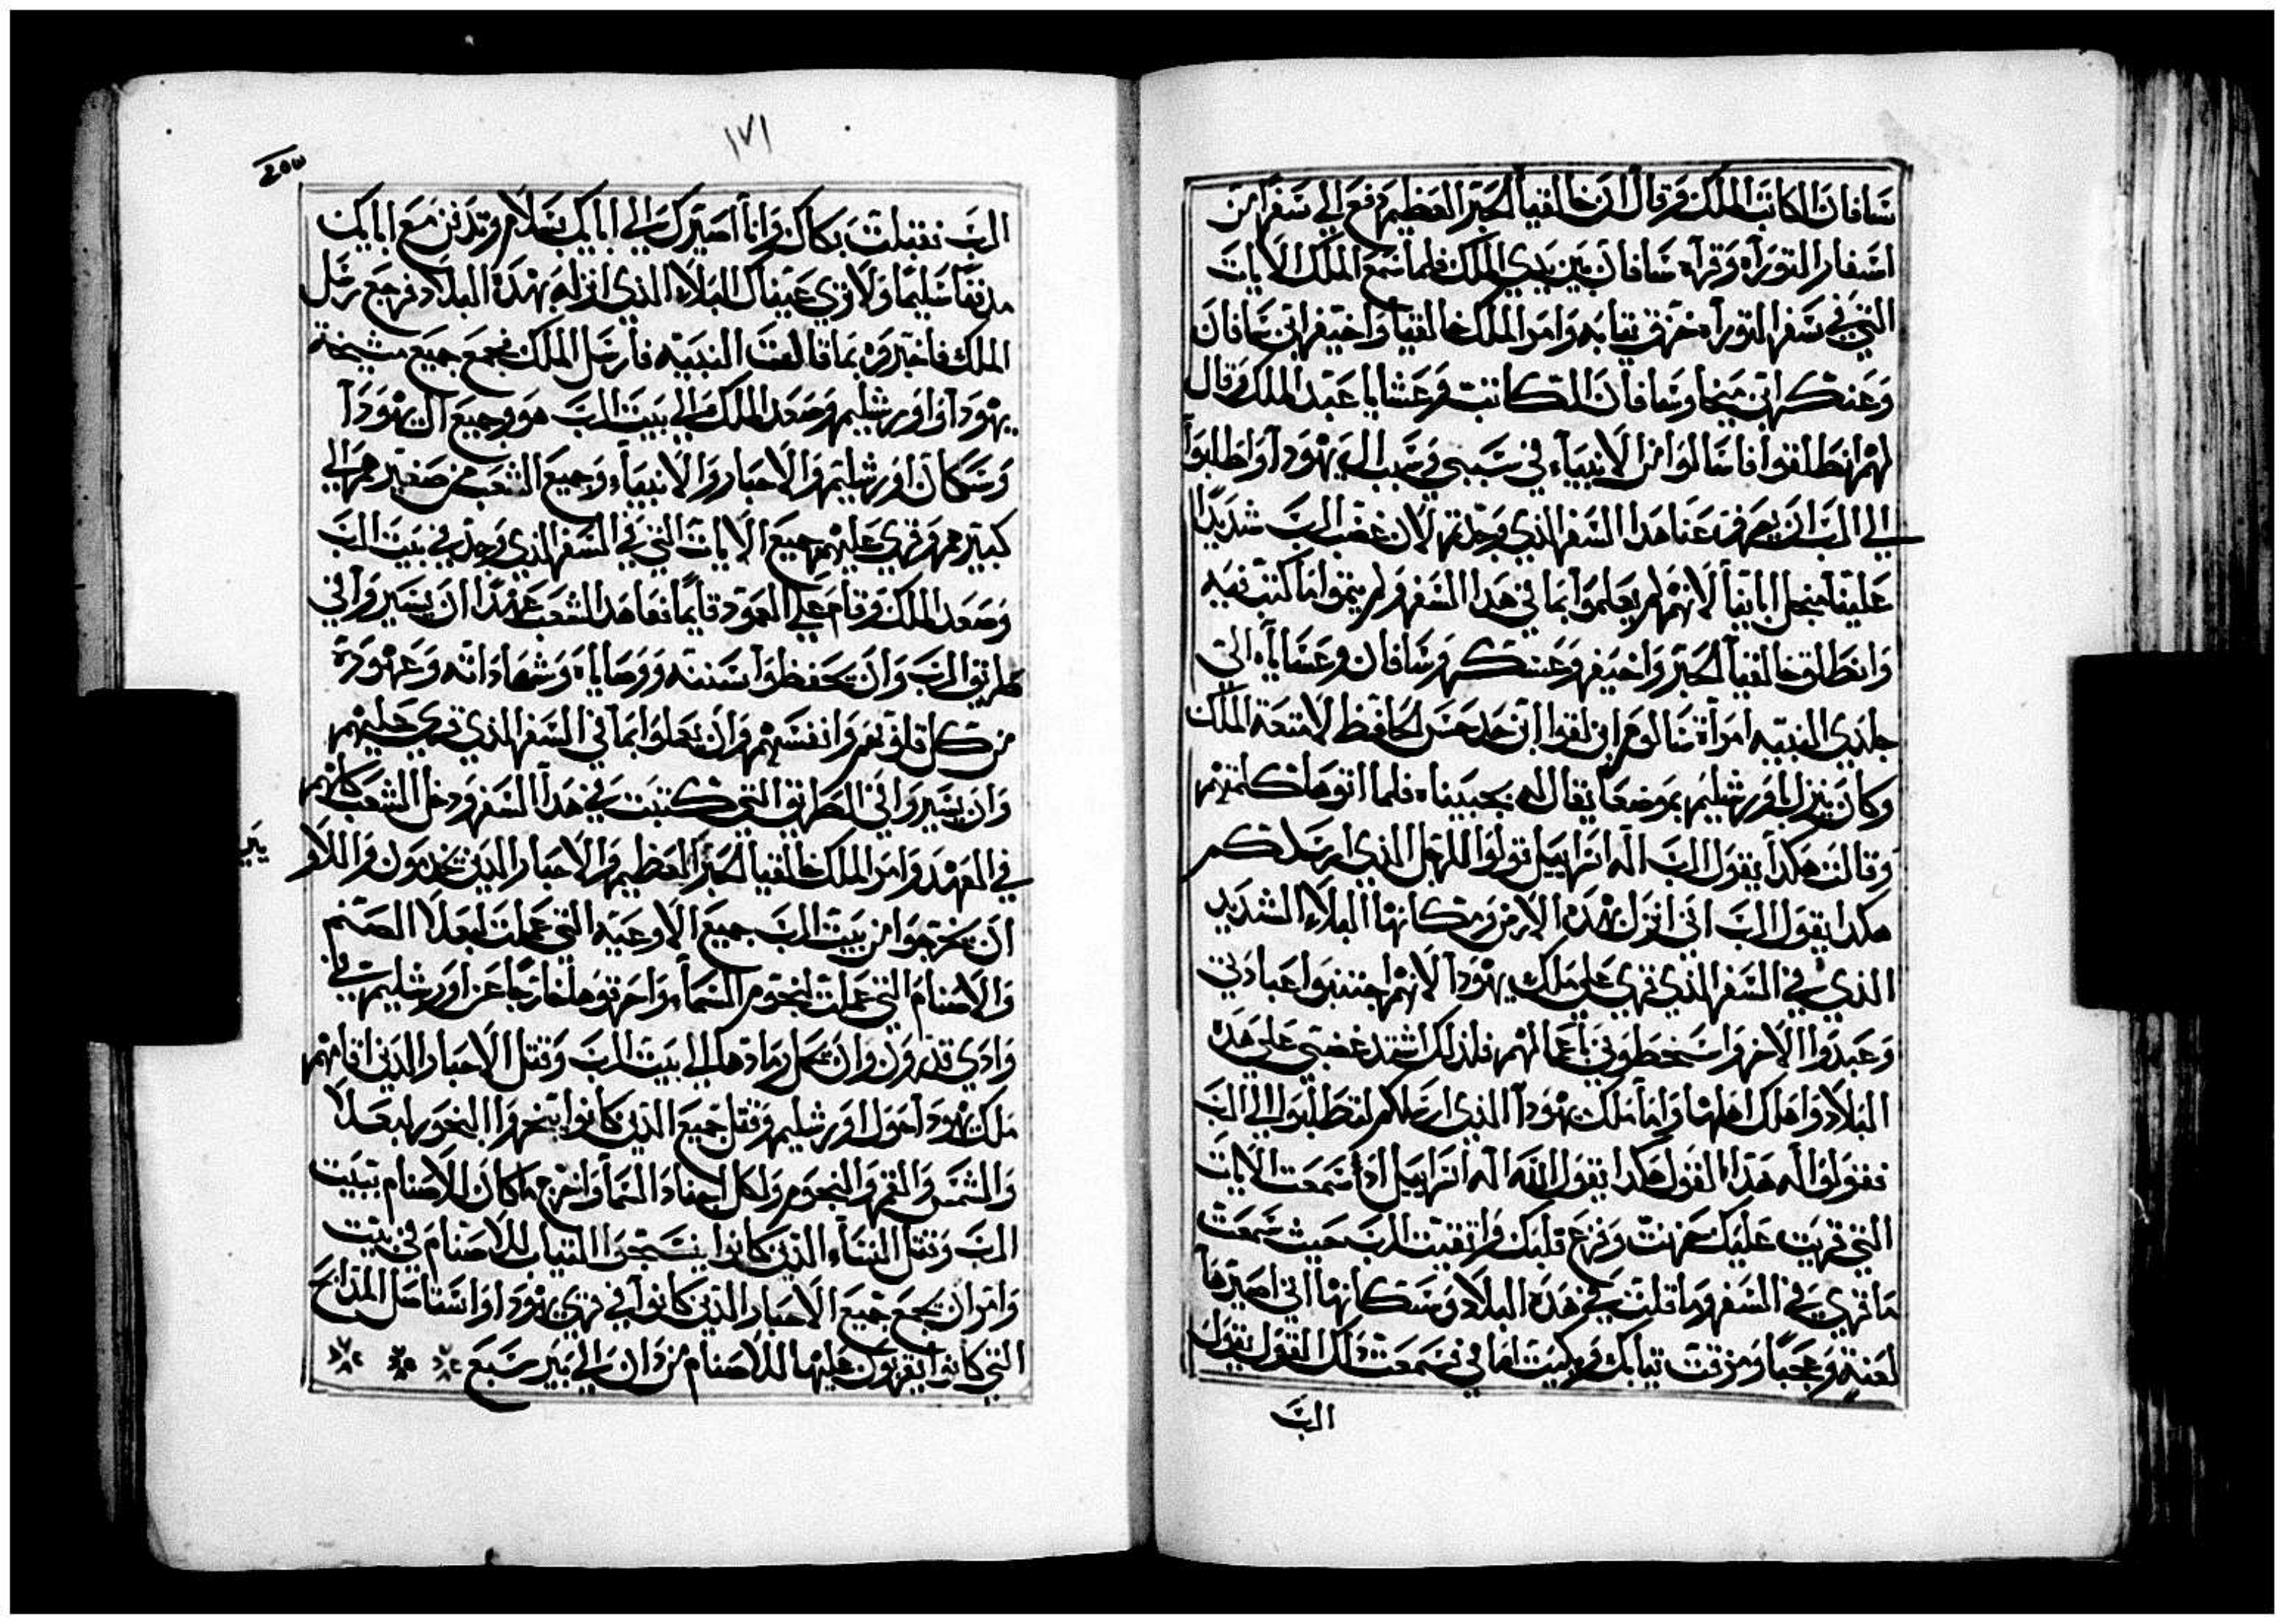 سافان الكاتب الملك وقال ان خالقيا الحبر العظيم دفع الي سفرا من
اسفار التوراه وقراه سافان بين يدي الملك فلما سمع الملك الايات
التي في سفر التوراه خرق ثيابه وامر الملك خالقيا واخيفر ابن سافان
وعنكر ابن ميخا وسافان الكاتب وعشايا عبد الملك وقال
لهم انطلقوا فاسالوا من الانبياء في سببي وفي سبب ال يهودا واطلبوا
الي الرب ان يصرف عنا هدا السفر الذي وجدتم لان غضب الرب شديدا
علينا منجل ابائنا لانهم لم يعلموا بما في هدا السفر ولم يتموا ما كتب فيه
وانطلق خالقيا الحبر واخيفر وعنكر وسافان وعشاياه الي
جلدي النبيه امراة سالوم ابن لقوا ابن حدحس الحافظ لامتعة الملك
وكان ينزل باورشليم بموضعا يقال له بحبيناه فلما اتوها كلمتهم
وقالت هكدا يقول الرب اله اسراييل قولوا للرجل الذي ارسلكم
هكدا يقول الرب اني انزل بهده الارض وسكانها البلاء الشديد
الذي في السفر الذي قري علي ملك يهودا لانهم اجتنبوا عبادتي
وعبدوا الاخر واسخطوني باعمالهم فلذلك اشتد غضبي علي هده
البلاد واهلك اهلها واما ملك يهودا الذي ارسلكم لتطلبوا الي الرب
فقولوا له هدا القول هكدا يقول الله اله اسراييل ادا سمعت الايات
التي قريت عليك حزنت وفزع قلبك واتقيت الرب حيث سمعت
ما قري في السفر وما قلت في هده البلاد وسكانها اني اصيرها
لعنة وعجبا ومزقت ثيابك وبكيت امامي فسمعت دلك القول يقول
الرب
١٧١
الرب فقبلت بكاك وانا اصيرك الي اباييك بسلام وتدفن مع اباييك
مدفنا سليما ولا تري عيناك البلاء الذي انزله بهده البلاد فرجع رسل
الملك فاخبروه بما قالت النبيه فارسل الملك فجمع جميع مشيخة
يهودا واورشليم وصعد الملك الي بيت الرب هو وجميع ال يهودا
وسكان اورشليم والاحبار والانبياء وجميع الشعب من صغيرهم الي
كبيرهم وقري عليهم جميع الايات التي في السفر الذي وجد في بيت الرب
وصعد الملك وقام علي العمود قايما فعاهد الشعب عهدا ان يسيروا في
طريق الرب وان يحفظوا سننه ووصاياه وشهاداته وعهوده
من كل قلوبهم وانفسهم وان يعملوا بما في السفر الذي قري عليهم
وان يسيروا في الطريق التي كتبت في هدا السفر ودخل الشعب كلهم
في العهد وامر الملك خالقيا الحبر العظيم والاحبار الدين يخدمون واللاو
يين
ان يخرجوا من بيت الرب جميع الاوعيه التي عملت لبعلا الصنم
والاصنام التي عملت لنجوم السماء واحرقوها خارجا عن اورشليم في
وادي قدرون وان تحمل رمادها الي بيت الرب وقتل الاحبار الدين اقامهم
ملك يهودا حول اورشليم وقتل جميع الدين كانوا يبخروا البخور لبعلا
والشمس والقمر والنجوم ولكل اجناد السما واخرج ما كان للاصنام ببيت
الرب وقتل النساء الدين كانوا ينسجوا الثياب للاصنام في بيت
وامر ان يجمع جميع الاحبار الدين كانوا في قري يهودا واستاصل المدابح
التي كانوا يقربون عليها للاصنام من دان الي بير سبع